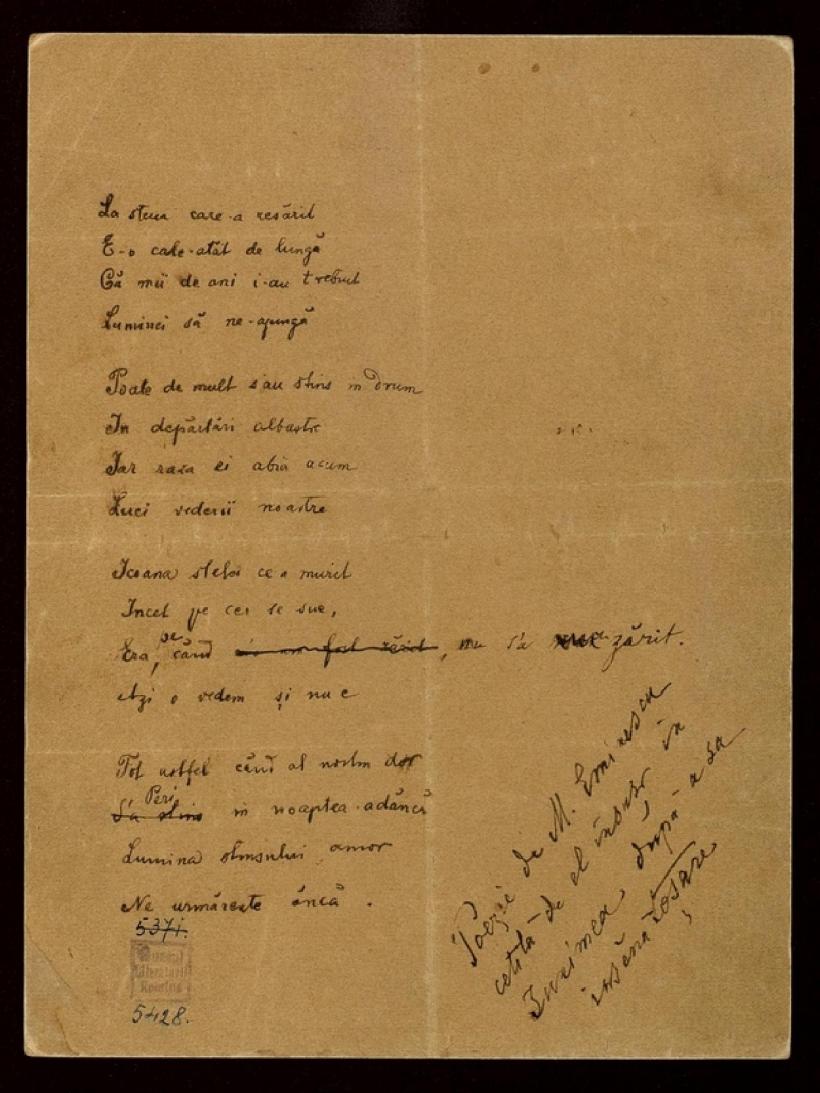 La steua care-a resărit
E-o cale-atât de lungă
Că mii de ani i-au trebuit
Luminei să ne-ajungă
Poate de mult s'au stins in drum
In depărtări albastre
Iar raza ei abia acum
Luci vederii noastre
Icoana stelei ce a murit
Incet pe cer se sue,
Era, pe când, nu s'a zărit.
Azi o vedem și nu e
Tot astfel când al nostru dor
Peri in noaptea-adâncă
Lumina stinsului amor
Ne urmărește âncă.
5371.
Muzeul
Literaturii
Române
5428.
Poezie de M. Eminescu
cetită de el însuși în
Junimea, după a sa
insănătoșare